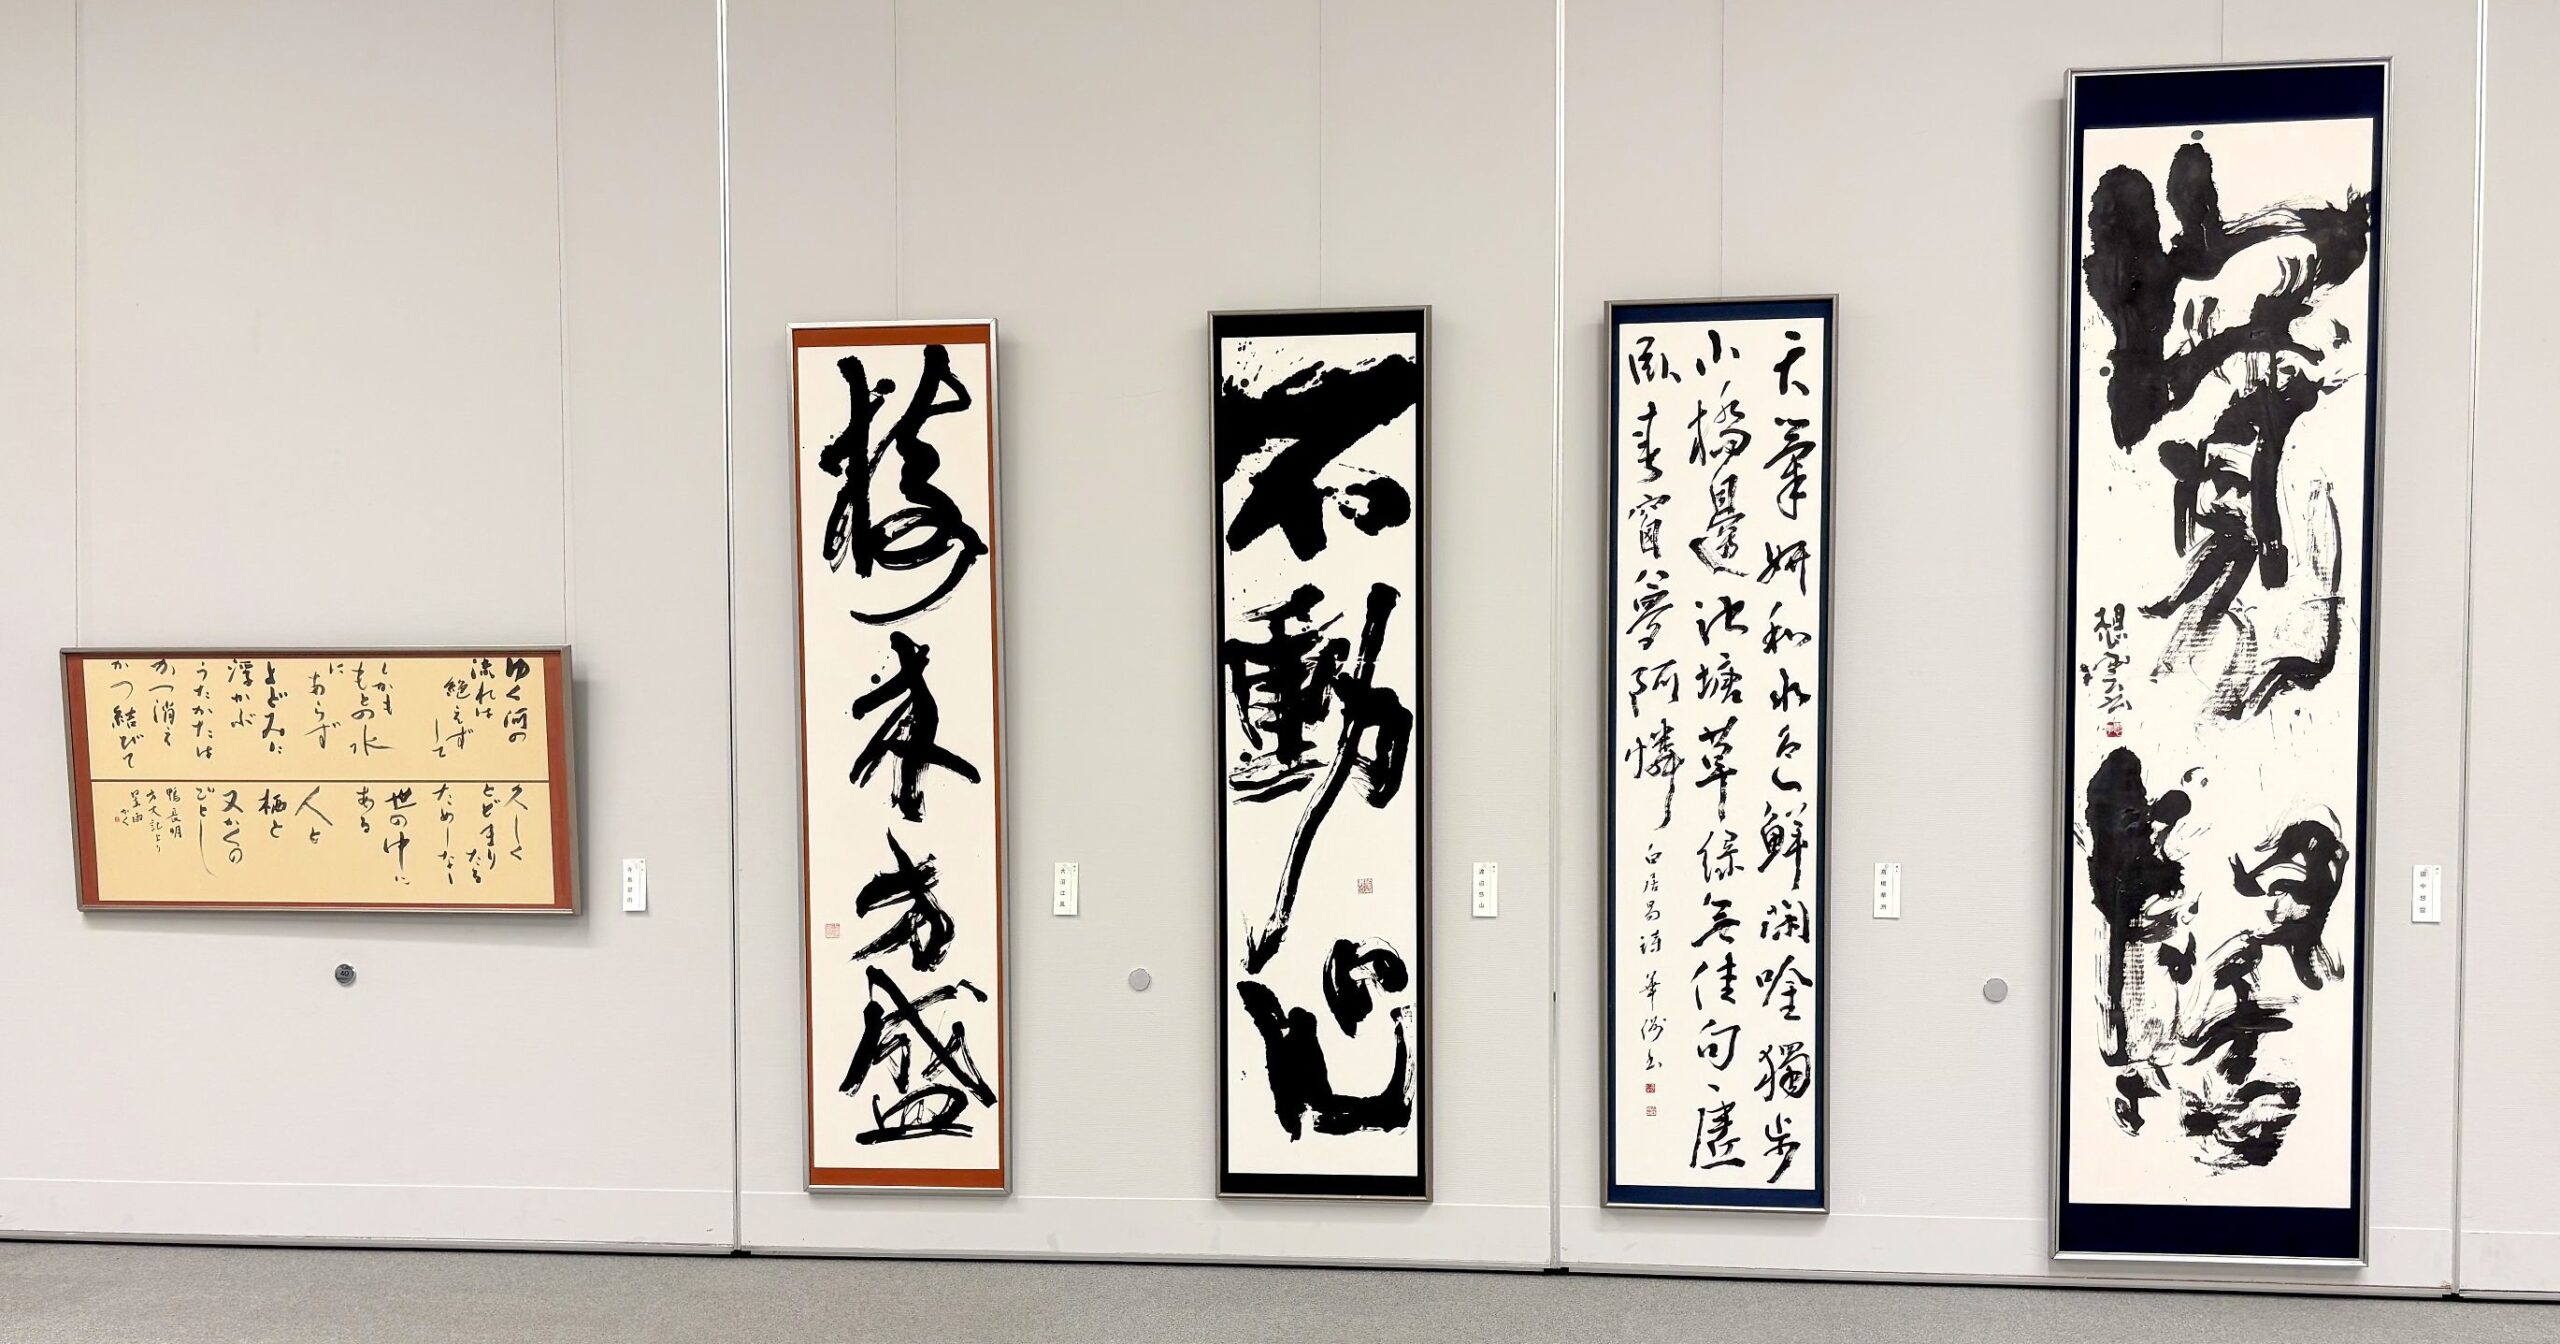 ゆく河の
流れは
絶えず
して
しかも
もとの水
に
あらず
よどみに
浮かぶ
うたかたは
かつ消え
かつ結びて
久しく
とどまりたる
ためしなし
世の中に
ある
人と
栖と
又かくの
ごとし
鴨長明
方丈記より
翠雨かく
来方盛
不動心
天氣妍和水色鮮閑吟獨步
小橋邊池塘草緑無佳句虛
臥春窗夢阿憐 白居易詩 華洲書
高橋華洲
想雲